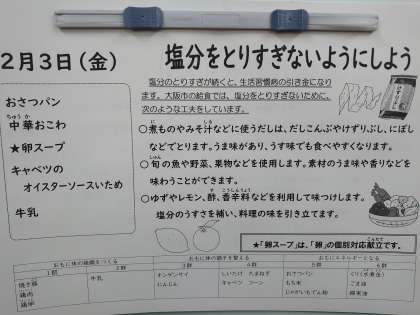 ２月３日（金）
塩分をとりすぎないようにしよう
おさつパン
ちゅうか
中華おこわ
★卵スープ
キャベツの
オイスターソースいため
牛乳
塩分のとりすぎが続くと、生活習慣病の引き金になり
ます。大阪市の給食では、塩分をとりすぎないために、
次のような工夫をしています。
○煮ものやみそ汁などに使うだしは、だしこんぶやけずりぶし、にぼし
などでとります。うま味があり、うす味でも食べやすくなります。
しゅん
○旬の魚や野菜、果物などを使用します。素材のうま味や香りなどを
味わうことができます。
す こうしんりょう
○ゆずやレモン、酢、香辛料などを利用して味つけします。
塩分のうすさを補い、料理の味を引き立てます。
★「卵スープ」は、「卵」の個別対応献立です。
おもに体の組織をつくる
おもに体の調子を整える
おもにエネルギーとなる
1群
2群
3群
4群
5群
6群
焼き豚
鶏肉
鶏卵
牛乳
チンゲンサイ
にんじん
しいたけ たまねぎ
キャベツ コーン
おさつパン
もち米
じゃがいもでん粉
ごま油
綿実油